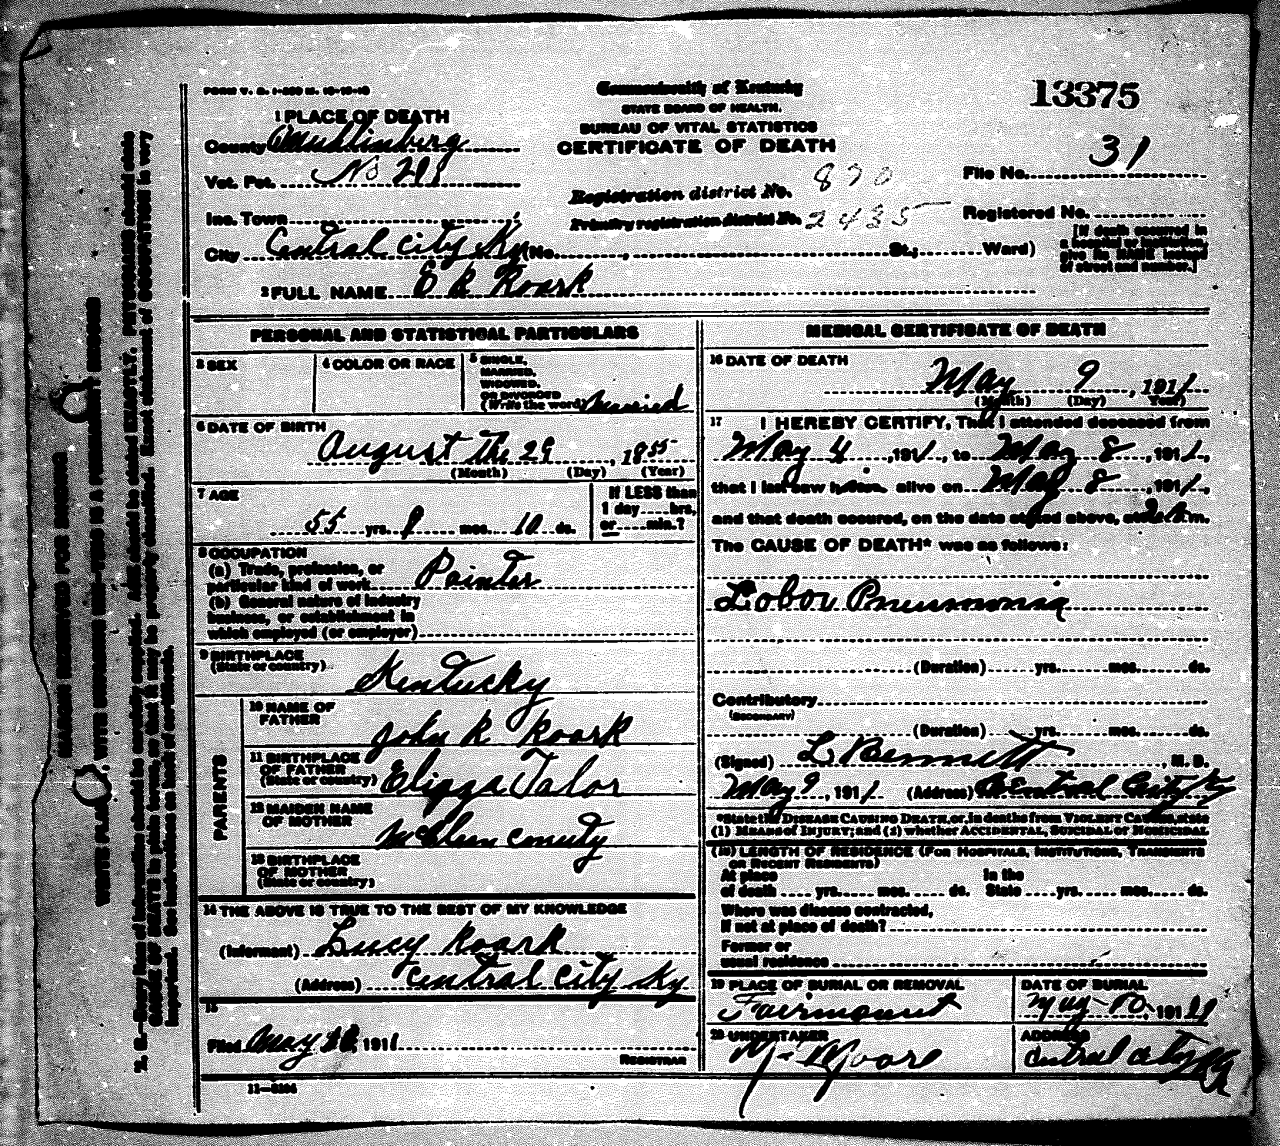 FORM V. S. 
Commonwealth of Kentucky
13375
STATE BOARD OF HEALTH.
BUREAU OF VITAL STATISTICS
CERTIFICATE OF DEATH
1 PLACE OF DEATH
County Muhlinburg
Vot. Pct. No 201
Inc. Town
City Central City Ky (No. , St.; Ward)
Registration district No. 870
Primary registration district No. 2435
File No. 31
Registered No.
[If death occurred in
a hospital or institution,
give its NAME instead
of street and number.]
2 FULL NAME E R Roark
PERSONAL AND STATISTICAL PARTICULARS
3 SEX
4 COLOR OR RACE
5 SINGLE,
MARRIED,
WIDOWED,
OR DIVORCED
(Write the word) Married
6 DATE OF BIRTH
August the 29, 1855
(Month) (Day) (Year)
7 AGE
55 yrs. 8 mos. 10 ds.
If LESS than
1 day hrs.
or min.?
8 OCCUPATION
(a) Trade, profession, or
particular kind of work Painter
(b) General nature of industry
business, or establishment in
which employed (or employer)
9 BIRTHPLACE
(State or country)
Kentucky
PARENTS
10 NAME OF
FATHER
John R Roark
11 BIRTHPLACE
OF FATHER
(State or country) Eligga Talor
12 MAIDEN NAME
OF MOTHER
McClean county
13 BIRTHPLACE
OF MOTHER
(State or country)
14 THE ABOVE IS TRUE TO THE BEST OF MY KNOWLEDGE
(Informant) Lucy Roark
(Address) Central City Ky
15
Filed May 10, 1911
REGISTRAR
11—
MEDICAL CERTIFICATE OF DEATH
16 DATE OF DEATH
May 9, 1911
(Month) (Day) Year)
17 I HEREBY CERTIFY, That I attended deceased from
May 4, 1911, to May 8, 1911,
that I last saw him alive on May 8, 1911,
and that death occured, on the date stated above, at 2 A.m.
The CAUSE OF DEATH* was as follows:
Lobor Pneumonia
(Duration) yrs. mos. ds.
Contributory
(SECONDARY)
(Duration) yrs. mos. ds.
(Signed) L Bennett, M. D.
May 9, 1911 (Address) Central City Ky
*State the DISEASE CAUSING DEATH, or, in deaths from VIOLENT CAUSES, state
(1) MEANS OF INJURY; and (2) whether ACCIDENTAL, SUICIDAL or HOMICIDAL
(18) LENGTH OF RESIDENCE (FOR HOSPITALS, INSTITUTIONS, TRANSIENTS
OR RECENT RESIDENTS)
At place In the
of death yrs. mos. ds. State yrs. mos. ds.
Where was disease contracted,
If not at place of death?
Former or
usual residence
19 PLACE OF BURIAL OR REMOVAL
Fairmount
DATE OF BURIAL
May 10 1911
20 UNDERTAKER
M. Moore
ADDRESS
Central City Ky
MARGIN RESERVED FOR BINDING
WRITE PLAINLY, WITH UNFADING INK—THIS IS A PERMANENT RECORD
N. B.—Every item of information should be carefully supplied. AGE should be stated EXACTLY. PHYSICIANS should state
CAUSE OF DEATH in plain terms, so that it may be properly classified. Exact statement of OCCUPATION is very
important. See instructions on back of certificate.